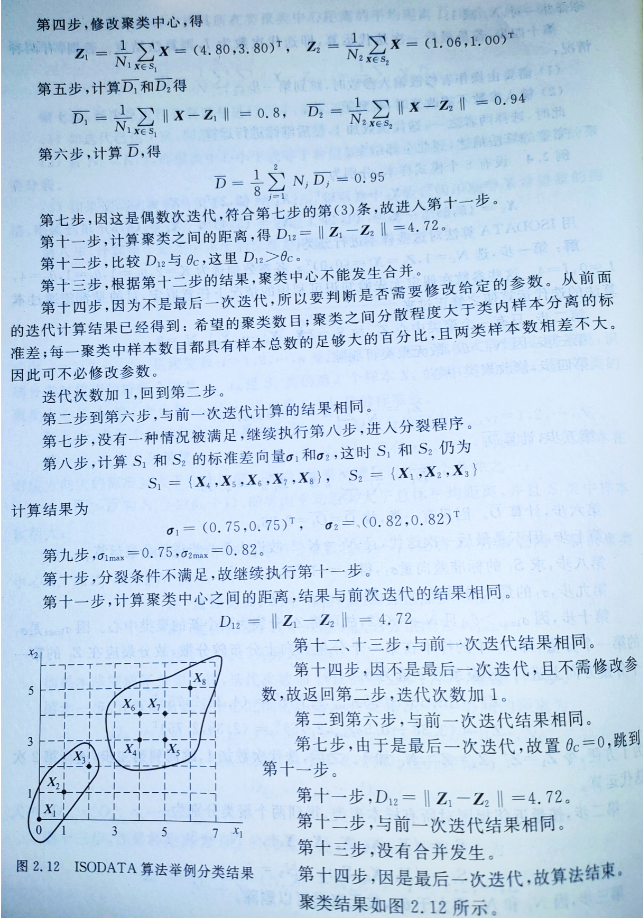 第四步,修改聚类中心,得
Z₁ = 1/N₁ ∑_{X∈S₁} X = (4.80,3.80)ᵀ, Z₂ = 1/N₂ ∑_{X∈S₂} X = (1.06,1.00)ᵀ
第五步,计算D̅₁和D̅₂得
D̅₁ = 1/N₁ ∑_{X∈S₁} ‖X−Z₁‖ = 0.8, D̅₂ = 1/N₂ ∑_{X∈S₂} ‖X−Z₂‖ = 0.94
第六步,计算 D̅,得
D̅ = 1/8 ∑_{j=1}^{2} Nⱼ D̅ⱼ = 0.95
第七步,因这是偶数次迭代,符合第七步的第(3)条,故进入第十一步。
第十一步,计算聚类之间的距离,得 D₁₂=‖Z₁−Z₂‖=4.72。
第十二步,比较 D₁₂与 θc,这里 D₁₂>θc。
第十三步,根据第十二步的结果,聚类中心不能发生合并。
第十四步,因为不是最后一次迭代,所以要判断是否需要修改给定的参数。从前面
的迭代计算结果已经得到:希望的聚类数目;聚类之间分散程度大于类内样本分离的标
准差;每一聚类中样本数目都具有样本总数的足够大的百分比,且两类样本数相差不大。
因此可不必修改参数。
迭代次数加 1,回到第二步。
第二步到第六步,与前一次迭代计算的结果相同。
第七步,没有一种情况被满足,继续执行第八步,进入分裂程序。
第八步,计算 S₁ 和 S₂ 的标准差向量σ₁和σ₂,这时 S₁ 和 S₂ 仍为
S₁ = {X₄,X₅,X₆,X₇,X₈}, S₂ = {X₁,X₂,X₃}
计算结果为
σ₁ = (0.75,0.75)ᵀ, σ₂=(0.82,0.82)ᵀ
第九步,σ₁max=0.75,σ₂max=0.82。
第十步,分裂条件不满足,故继续执行第十一步。
第十一步,计算聚类中心之间的距离,结果与前次迭代的结果相同。
D₁₂ = ‖Z₁−Z₂‖ = 4.72
第十二、十三步,与前一次迭代结果相同。
第十四步,因不是最后一次迭代,且不需修改参
数,故返回第二步,迭代次数加 1。
第二到第六步,与前一次迭代结果相同。
第七步,由于是最后一次迭代,故置 θc=0,跳到
第十一步。
第十一步,D₁₂=‖Z₁−Z₂‖=4.72。
第十二步,与前一次迭代结果相同。
第十三步,没有合并发生。
第十四步,因是最后一次迭代,故算法结束。
聚类结果如图 2.12 所示。
x₂
5
3
1
0 1 3 5 7 x₁
X₈
X₆ X₇
X₄ X₅
X₃
X₂
X₁
图 2.12 ISODATA 算法举例分类结果